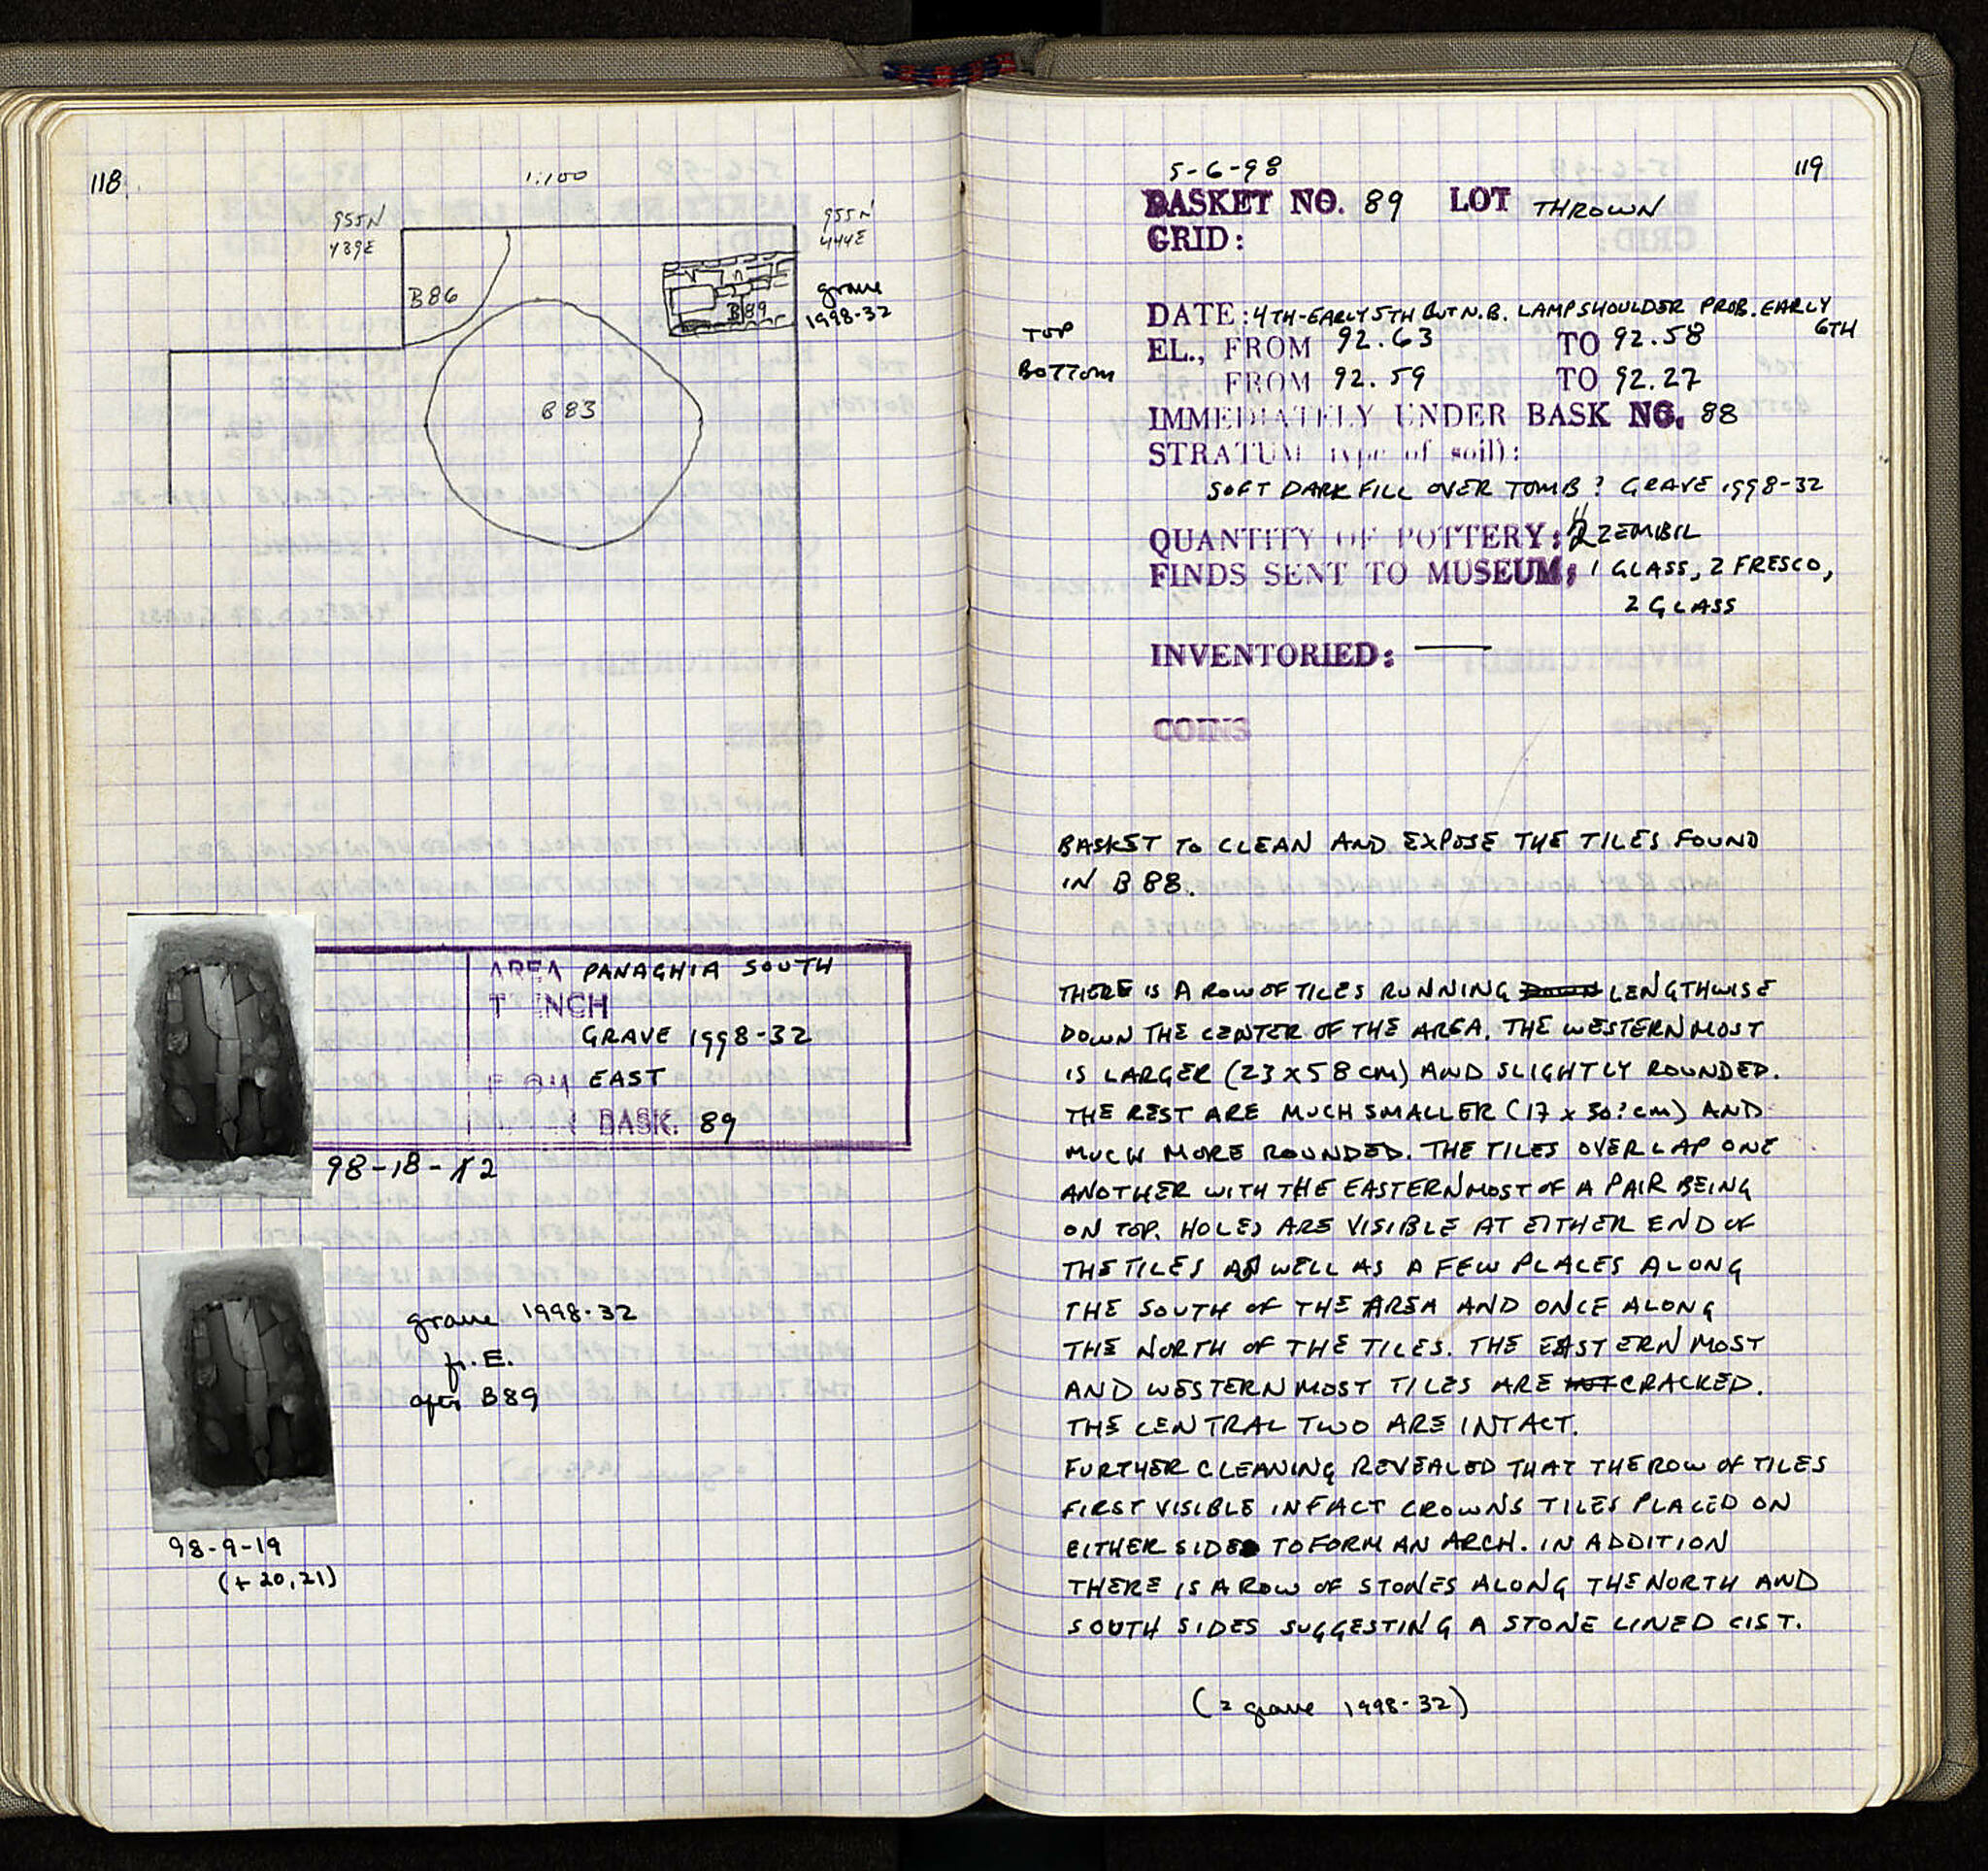 118
1:100
955N
439E
955N
444E
B86
B89
grave
1998-32
B83
AREA PANAGHIA SOUTH
TRENCH
GRAVE 1998-32
FROM EAST
BASK. 89
98-18-12
grave 1998-32
fr. E.
after B89
98-9-19
(+ 20, 21)
119
5-6-98
BASKET NO. 89 LOT THROWN
GRID:
DATE: 4TH-EARLY 5TH BUT N.B. LAMP SHOULDER PROB. EARLY
6TH
TOP EL., FROM 92.63 TO 92.58
BOTTOM FROM 92.59 TO 92.27
IMMEDIATELY UNDER BASK NO. 88
STRATUM (type of soil):
SOFT DARK FILL OVER TOMB? GRAVE 1998-32
QUANTITY OF POTTERY: ZEMBIL
FINDS SENT TO MUSEUM: 1 GLASS, 2 FRESCO,
2 GLASS
INVENTORIED: —
COINS
BASKET TO CLEAN AND EXPOSE THE TILES FOUND
IN B 88.
THERE IS A ROW OF TILES RUNNING LENGTHWISE
DOWN THE CENTER OF THE AREA. THE WESTERNMOST
IS LARGER (23 x 58 CM) AND SLIGHTLY ROUNDED.
THE REST ARE MUCH SMALLER (17 x 30? cm) AND
MUCH MORE ROUNDED. THE TILES OVERLAP ONE
ANOTHER WITH THE EASTERNMOST OF A PAIR BEING
ON TOP. HOLES ARE VISIBLE AT EITHER END OF
THE TILES AS WELL AS A FEW PLACES ALONG
THE SOUTH OF THE AREA AND ONCE ALONG
THE NORTH OF THE TILES. THE EASTERN MOST
AND WESTERNMOST TILES ARE CRACKED.
THE CENTRAL TWO ARE INTACT.
FURTHER CLEANING REVEALED THAT THE ROW OF TILES
FIRST VISIBLE IN FACT CROWNS TILES PLACED ON
EITHER SIDE TO FORM AN ARCH. IN ADDITION
THERE IS A ROW OF STONES ALONG THE NORTH AND
SOUTH SIDES SUGGESTING A STONE LINED CIST.
(= grave 1998-32)